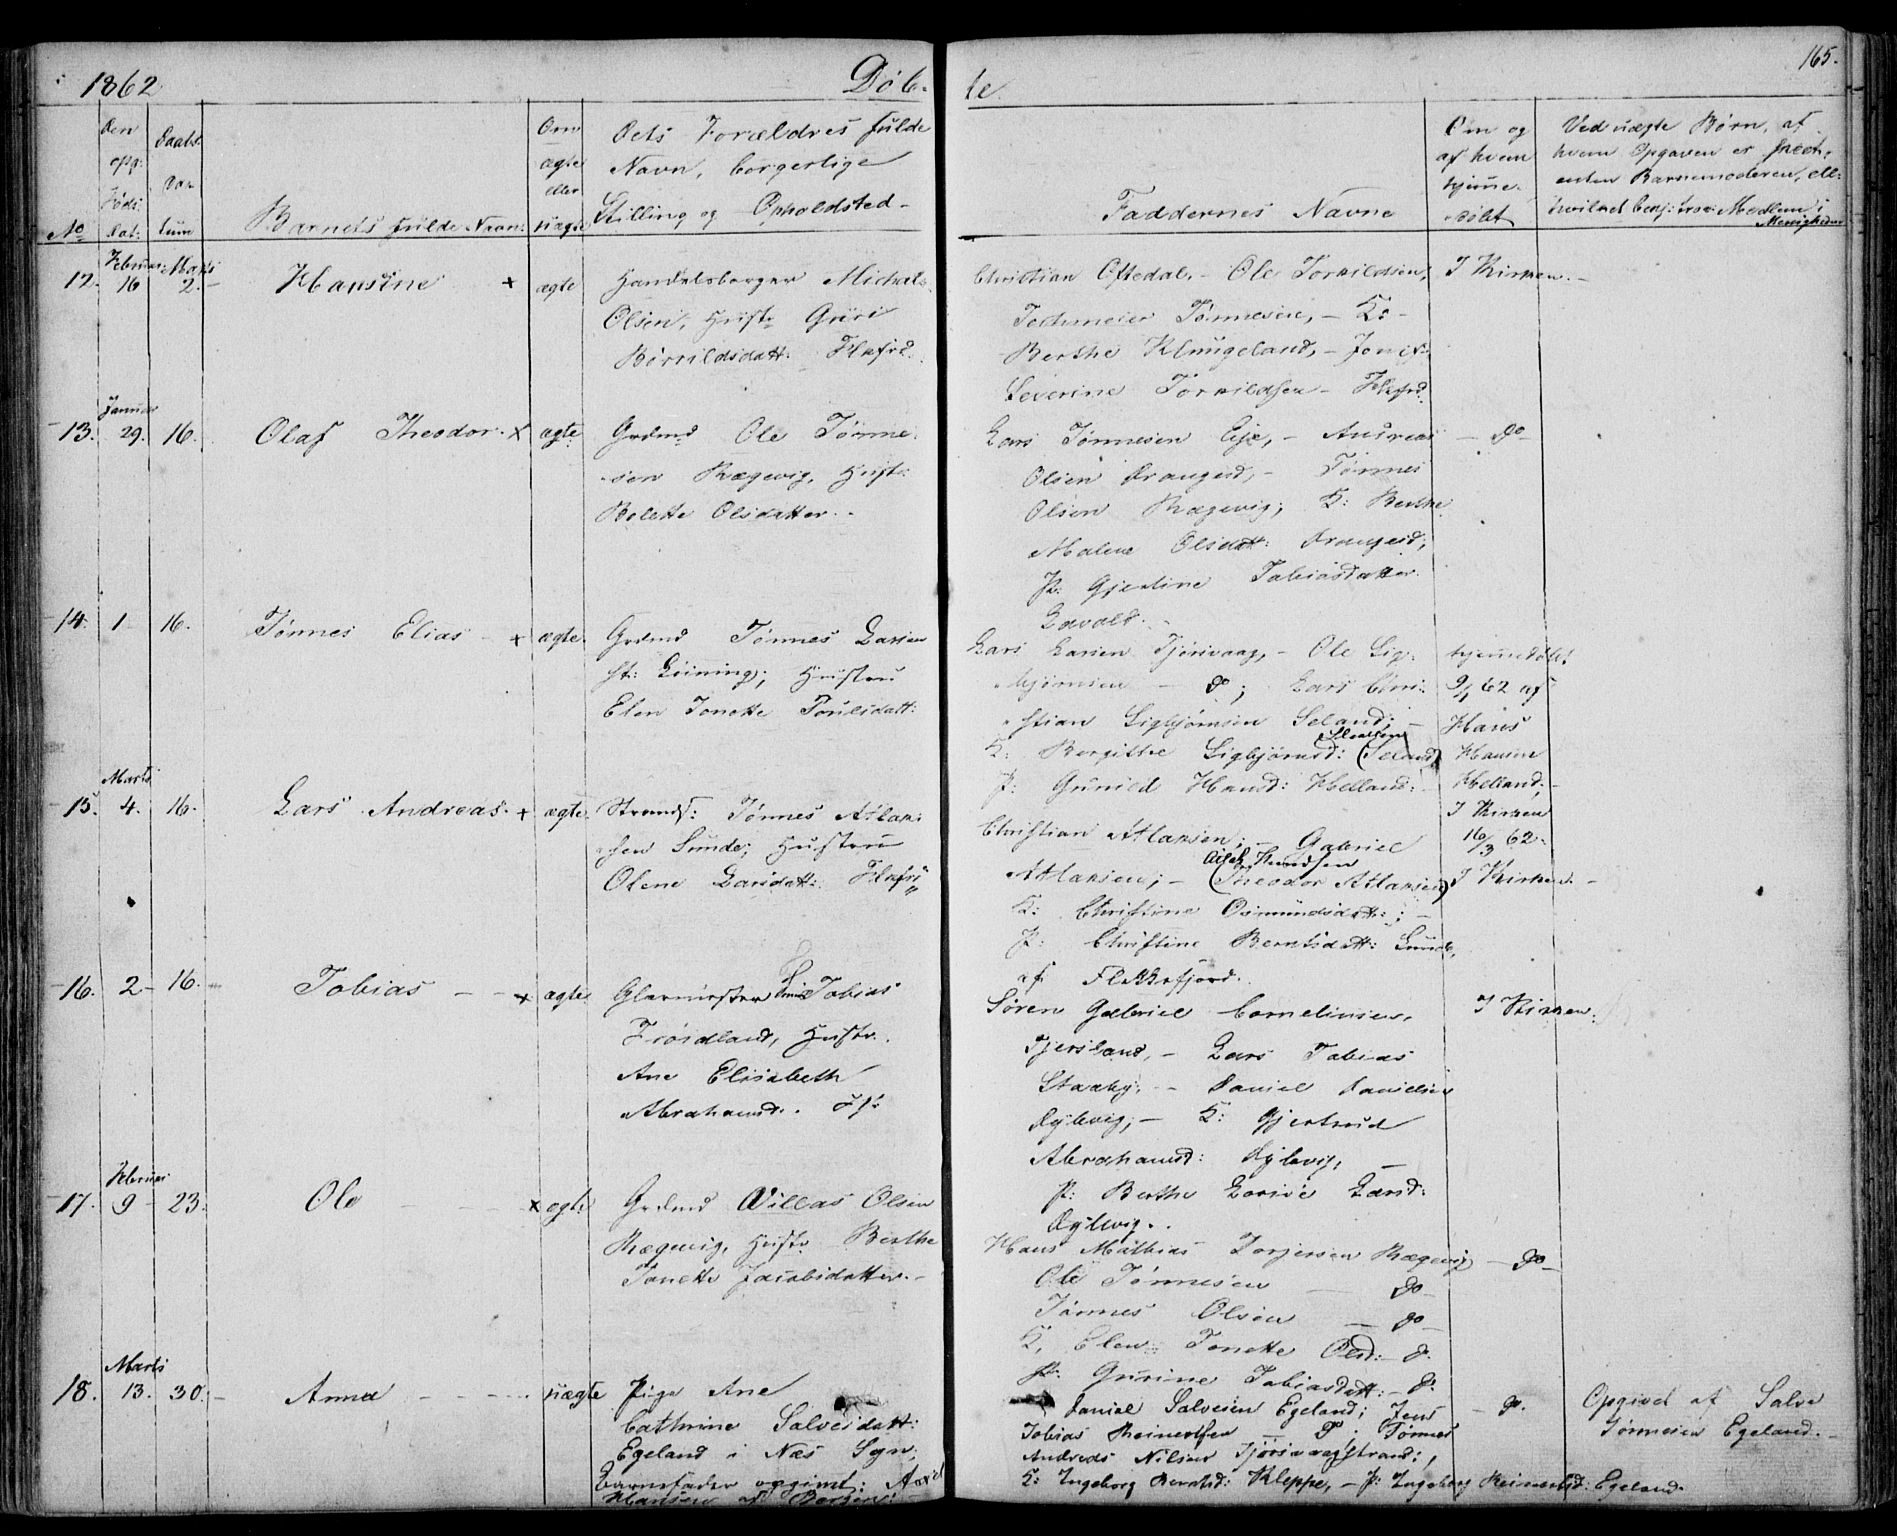 1862
Døb-
te
165.
No
Den
opg:
Føds:
dat:
Daabs
Da-
tum
Barnets fulde Navn
Om
ægte
eller
uægte
Dets Forældres fulde
Navn, borgerlige
Stilling og Opholdsted
Faddernes Navne
Om og
af hvem
hjemme-
døbt
Ved uægte Børn, af
hvem Opgaven er skeet,
enten Barnemoderen, ell:
hvilket Medlem i
Menigheden
12. Februar 16 Marts 2. Hansine x ægte
Handelsborger Michael
Olsen, Hustr Guri
Børrildsdatt: Flkfrd.
Christian Oftedal, - Ole Torkildsen,
Jochumsier Tønnesen, - K:
Berthe Klungeland, - Jomf:
Severine Torkildsen - Flkfrd.
I Kirken. -
13. Januar 29. 16. Olaf Theodor. x ægte
Grdmd Ole Tønne-
sen Rægevig, Hust:
Bolette Olsdatter.
Lars Tønnesen Eje, - Andreas
Olsen Drangeid, - Tønnes
Olsen Rægevig; K: Berthe
Malene Olsdatt: Drangeid;
P: Gjertine Tobiasdatter
Lavold.
- do -
14. 1 16. Tønnes Elias - x ægte
Grdmd Tønnes Larsen
st: Løining; Hustru
Elen Tonette Poulsdatt:
Lars Larsen Tjørsvaag, - Ole Sig-
bjørnsen - do; Lars Chri-
stian Sigbjørnsen Seland; -
K: Borgithe Sigbjørnsd: (Seland)
P: Gunild Hansd: Helland. -
hjemmedøbt
9/1 62 af
Hans
Hansen
Helland; -
I Kirken
16/3 62.
15. Marts 4. 16. Lars Andreas. x ægte
Strands: Tønnes Atlak-
sen Sunde; Hustru
Olene Larsdatt: Flkfrd
Christian Atlaksen; - Gabriel
Atlaksen; - (Theodor Atlaksen)
K: Christine Osmundsdatt: ; -
P: Christine Berntsdatt: Sunde,
af Flekkefjord.
I Kirken. -
16. 2 - 16. Tobias - - x ægte
Glarmester Tobias
Frøisland, Hustr.
Ane Elisabeth
Abrahamsd:
Søren Gabriel Cornelius
Tjersland, - Lars Tobias
Daniel Danielsen
Dybvig; - K: Gjertrud
Abrahamsd: Dybvig,
P: Berthe Larsd:
Dybvig.
I Kirken
17. Februar 9 - 23. Ole - - x ægte
Grdmd Villas Olsen
Rægevig, Hustr Berthe
Tonette Jacobsdatter. -
Hans Mathias Torjersen Rægevig
Ole Tønnesen - do -
Tønnes Olsen - do -
K. Elen Tonette Olsd: - d.
P: Gurine Tobiasdatt: - d.
- do -
18. Marts 13. 30. - Anna - - uægte
Pige Ane
Cathrine Salvesdatt:
Egeland i Næs Sogn,
Barnefader opgivet: Axel
Hansen af Bergen.
Daniel Salvesen Egeland; Jens
Tobias Reinertsen - Tønnes
Andreas Nilsen Tjørsvaagstrand;
K: Ingeborg Berntsd: Kleppe, - P: Ingeborg Reinertsd: Egeland.
- do.
Opgivet af Salve
Tønnesen Egeland. -